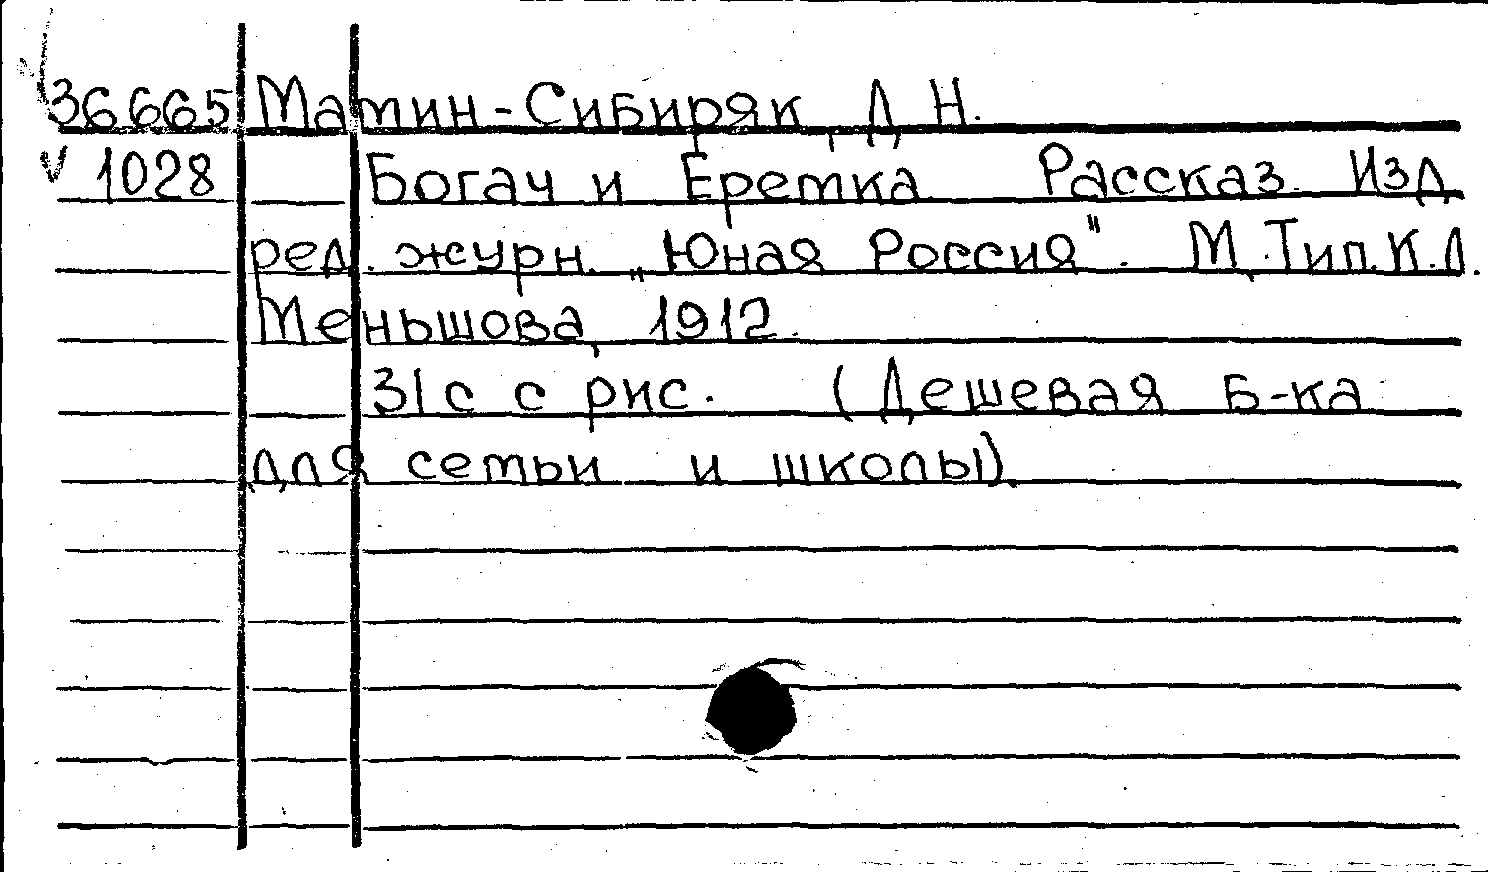 36665 Мамин-Сибиряк, Д.Н.
v 1028 Богач и Еремка. Рассказ. Изд.
ред. журн. „Юная Россия". М., Тип. К.Л.
Меньшова, 1912.
31 с. с рис. (Дешевая б-ка
для семьи и школы).